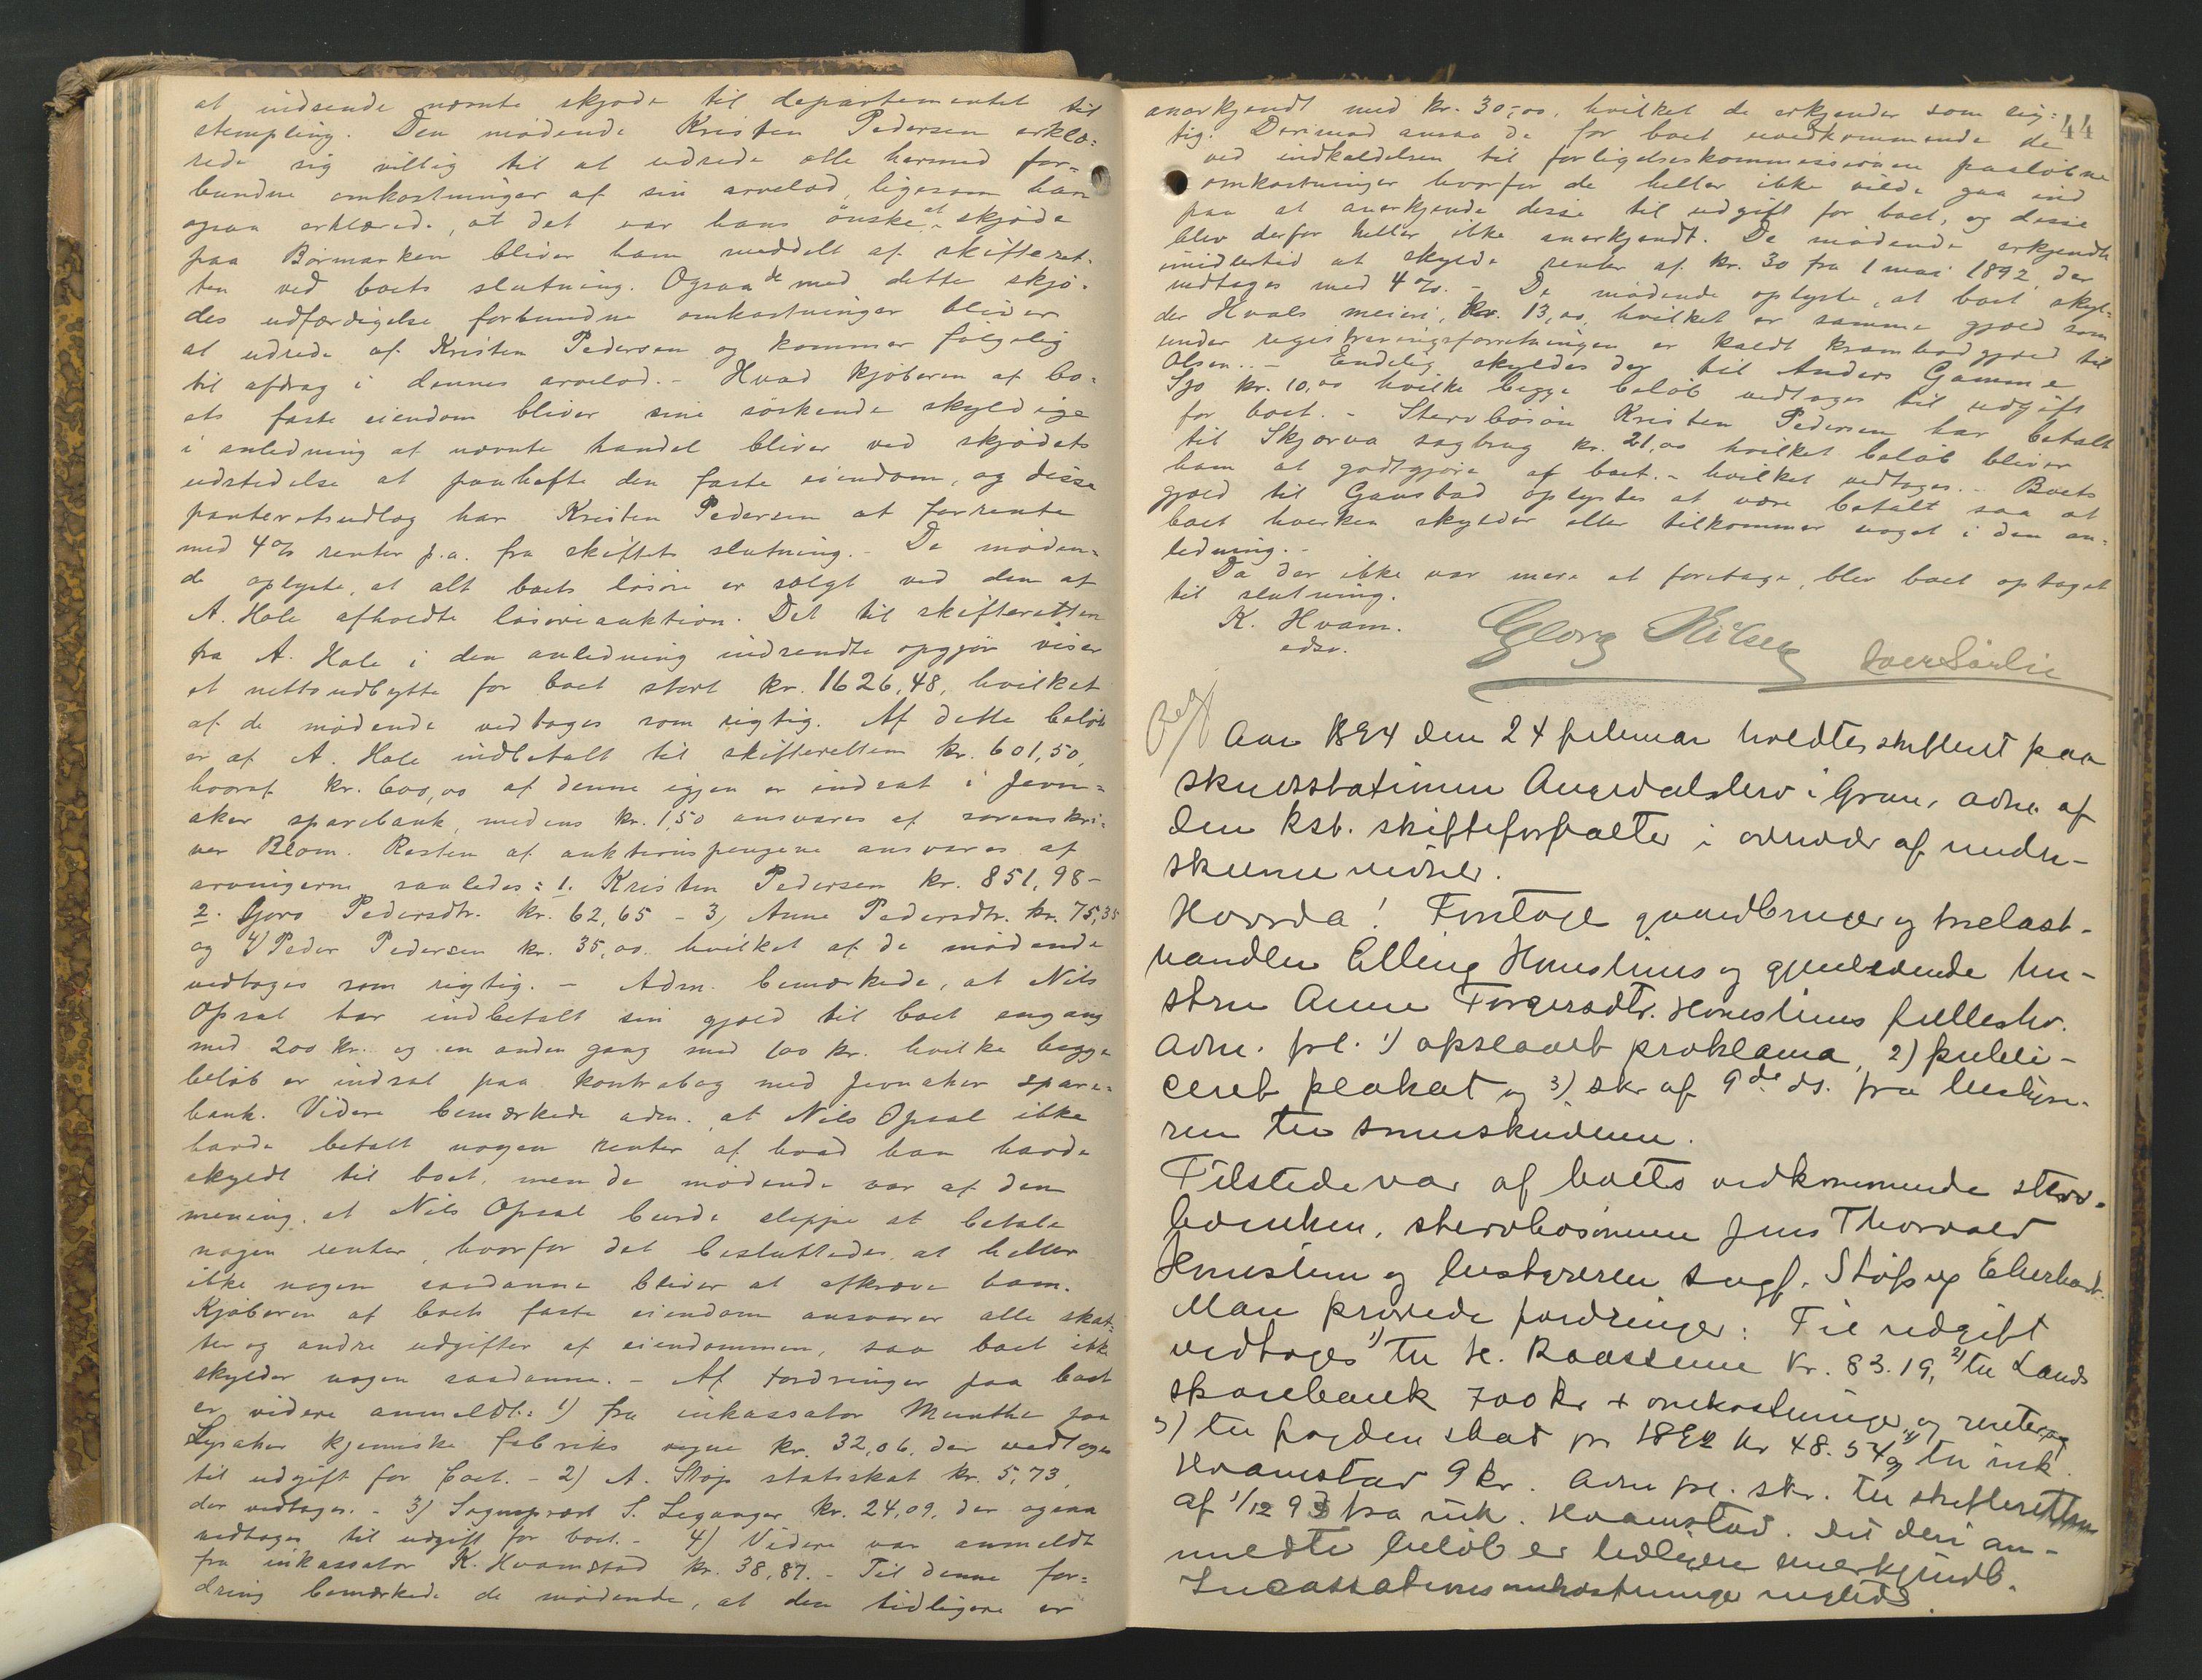 at indsende nævnte skjøde til departementet til
stempling. Den mødende Kristen Pedersen erklæ=
rede sig villig til at udrede alle hermed for=
bundne omkostninger af sin arvelod, ligesom han
ogsaa erklærede, at det var hans ønske, at skjøde
paa Børmarken bliver ham meddelt af skifteret=
ten ved boets slutning. Ogsaa de med dette skjø=
des udfærdigelse forbundne omkostninger bliver
at udrede af Kristen Pedersen og kommer følgelig
til afdrag i dennes arvelod. - Hvad kjøberen af bo=
ets faste eiendom bliver sine søskende skyldige
i anledning af nævnte handel bliver ved skjødets
udstedelse at paahefte den faste eiendom, og disse
panteretsudlæg har Kristen Pedersen at forrente
med 4% renter p.a. fra skiftets slutning. - De møden=
de oplyste, at alt boets løsøre er solgt ved den af
A. Hole afholdte løsøreauktion. Det til skifteretten
fra A. Hole i den anledning indsendte opgjør viser
et nettoudbytte for boet stort kr. 1626,48, hvilket
af de mødende vedtages som rigtig. Af dette beløb
er af A. Hole indbetalt til skifteretten kr. 601,50,
hvoraf kr. 600,00 af denne igjen er indsat i Jevn=
aker sparebank, medens kr. 1,50 ansvares af sorenskri=
ver Blom. Resten af auktionspengene ansvares af
arvingerne saaledes: 1. Kristen Pedersen kr. 851,98 -
2. Goro Pedersdtr. kr. 62,65 - 3, Anne Pedersdtr. kr. 75,35
og 4) Peder Pedersen kr. 35,00. hvilket af de mødende
vedtages som rigtig. - Adm. bemærkede, at Nils
Opsal har indbetalt sin gjæld til boet engang
med 200 kr. og en anden gang med 100 kr. hvilke begge
beløb er indsat paa kontrabog med Jevnaker spare=
bank. Videre bemærkede adm. at Nils Opsal ikke
havde betalt nogen renter af hvad han havde
skyldt til boet, men de mødende var af den
mening, at Nils Opsal burde slippe at betale
nogen renter, hvorfor det besluttedes at heller
ikke nogen saadanne bliver at afkræve ham.
Kjøberen af boets faste eiendom ansvarer alle skat=
ter og andre udgifter af eiendommen, saa boet ikke
skylder nogen saadanne. - Af fordringer paa boet
er videre anmeldt: 1) fra inkassator Munthe paa
Lysaker kjemiske fabriks vegne kr. 32,06, der vedtages
til udgift for boet. - 2) A. Støp statsskat kr. 5,73,
der vedtages. - 3) Sogneprest S. Leganger kr. 24,09, der ogsaa
vedtages til udgift for boet. - 4) Videre var anmeldt
fra inkassator K. Hvamstad kr. 38,87. - Til denne for=
dring bemærkede de mødende, at den tidligere er
44
anerkjendt med kr. 30,00, hvilket de erkjender som rig=
tig. Derimod ansaa de for boet uvedkommende de
ved indkaldelsen til forligelseskommissionen paaløbne
omkostninger hvorfor de heller ikke vilde gaa ind
paa at anerkjende disse til udgift for boet, og disse
blev derfor heller ikke anerkjendt. De mødende erkjendte
imidlertid at skylde renter af kr. 30 fra 1 mai 1892, der
vedtages med 4%. - De mødende oplyste, at boet skyl=
der Hvals meieri, kr. 13,00, hvilket er samme gjæld som
under registreringsforretningen er kaldt krambodgjæld til
Olsen. - Endelig skyldes der til Anders Gamme
Sjo kr. 10,00 hvilke begge beløb vedtages til udgift
for boet. - Stervbosøn Kristen Pedersen har betalt
til Skjerva sagbrug kr. 21,00 hvilket beløb bliver
ham at godtgjøre af boet. - hvilket vedtages. - Boets
gjæld til Gausbad oplystes at være betalt saa at
boet hverken skylder eller tilkommer noget i den an=
ledning. -
Da der ikke var mere at foretage, blev boet optaget
til slutning.
K. Hvam.
edsv.
Georg
Iver Sørlie
Aar 1894 den 24 februar holdtes skifteret paa
skydsstationen i Gran, adm. af
den kst. skifteforvalter i overvær af under-
skrevne vidner.
Hvorda! Foretoges gaardbruger og trælast-
handler Elling og gjenlevende hu-
stru Anne fællesbo.
Adm. frl. 1) opslaaet proklama, 2) publi-
ceret plakat og 3) skr. af 9de ds. fra bestyre-
ren til sorenskriveren.
Tilstede var af boets vedkommende sterv-
boenken, stervbosønnen Jens Thorvald
og bestyreren sagf. Støp og Eberhardt.
Man prøvede fordringer: Til udgift
vedtoges 1) til H. kr. 83.19, 2) til Lands
sparebank 700 kr + omkostninger og renter, og
3) til fogden skat for 1892 kr 48.54 og 4) til ink.
Hvamstad 9 kr. Adm frl. skr. til skifteretten
af 1/12 93 fra ink. Hvamstad. Det deri an-
meldte beløb er tidligere anerkjendt.
Incassationsomkostninger